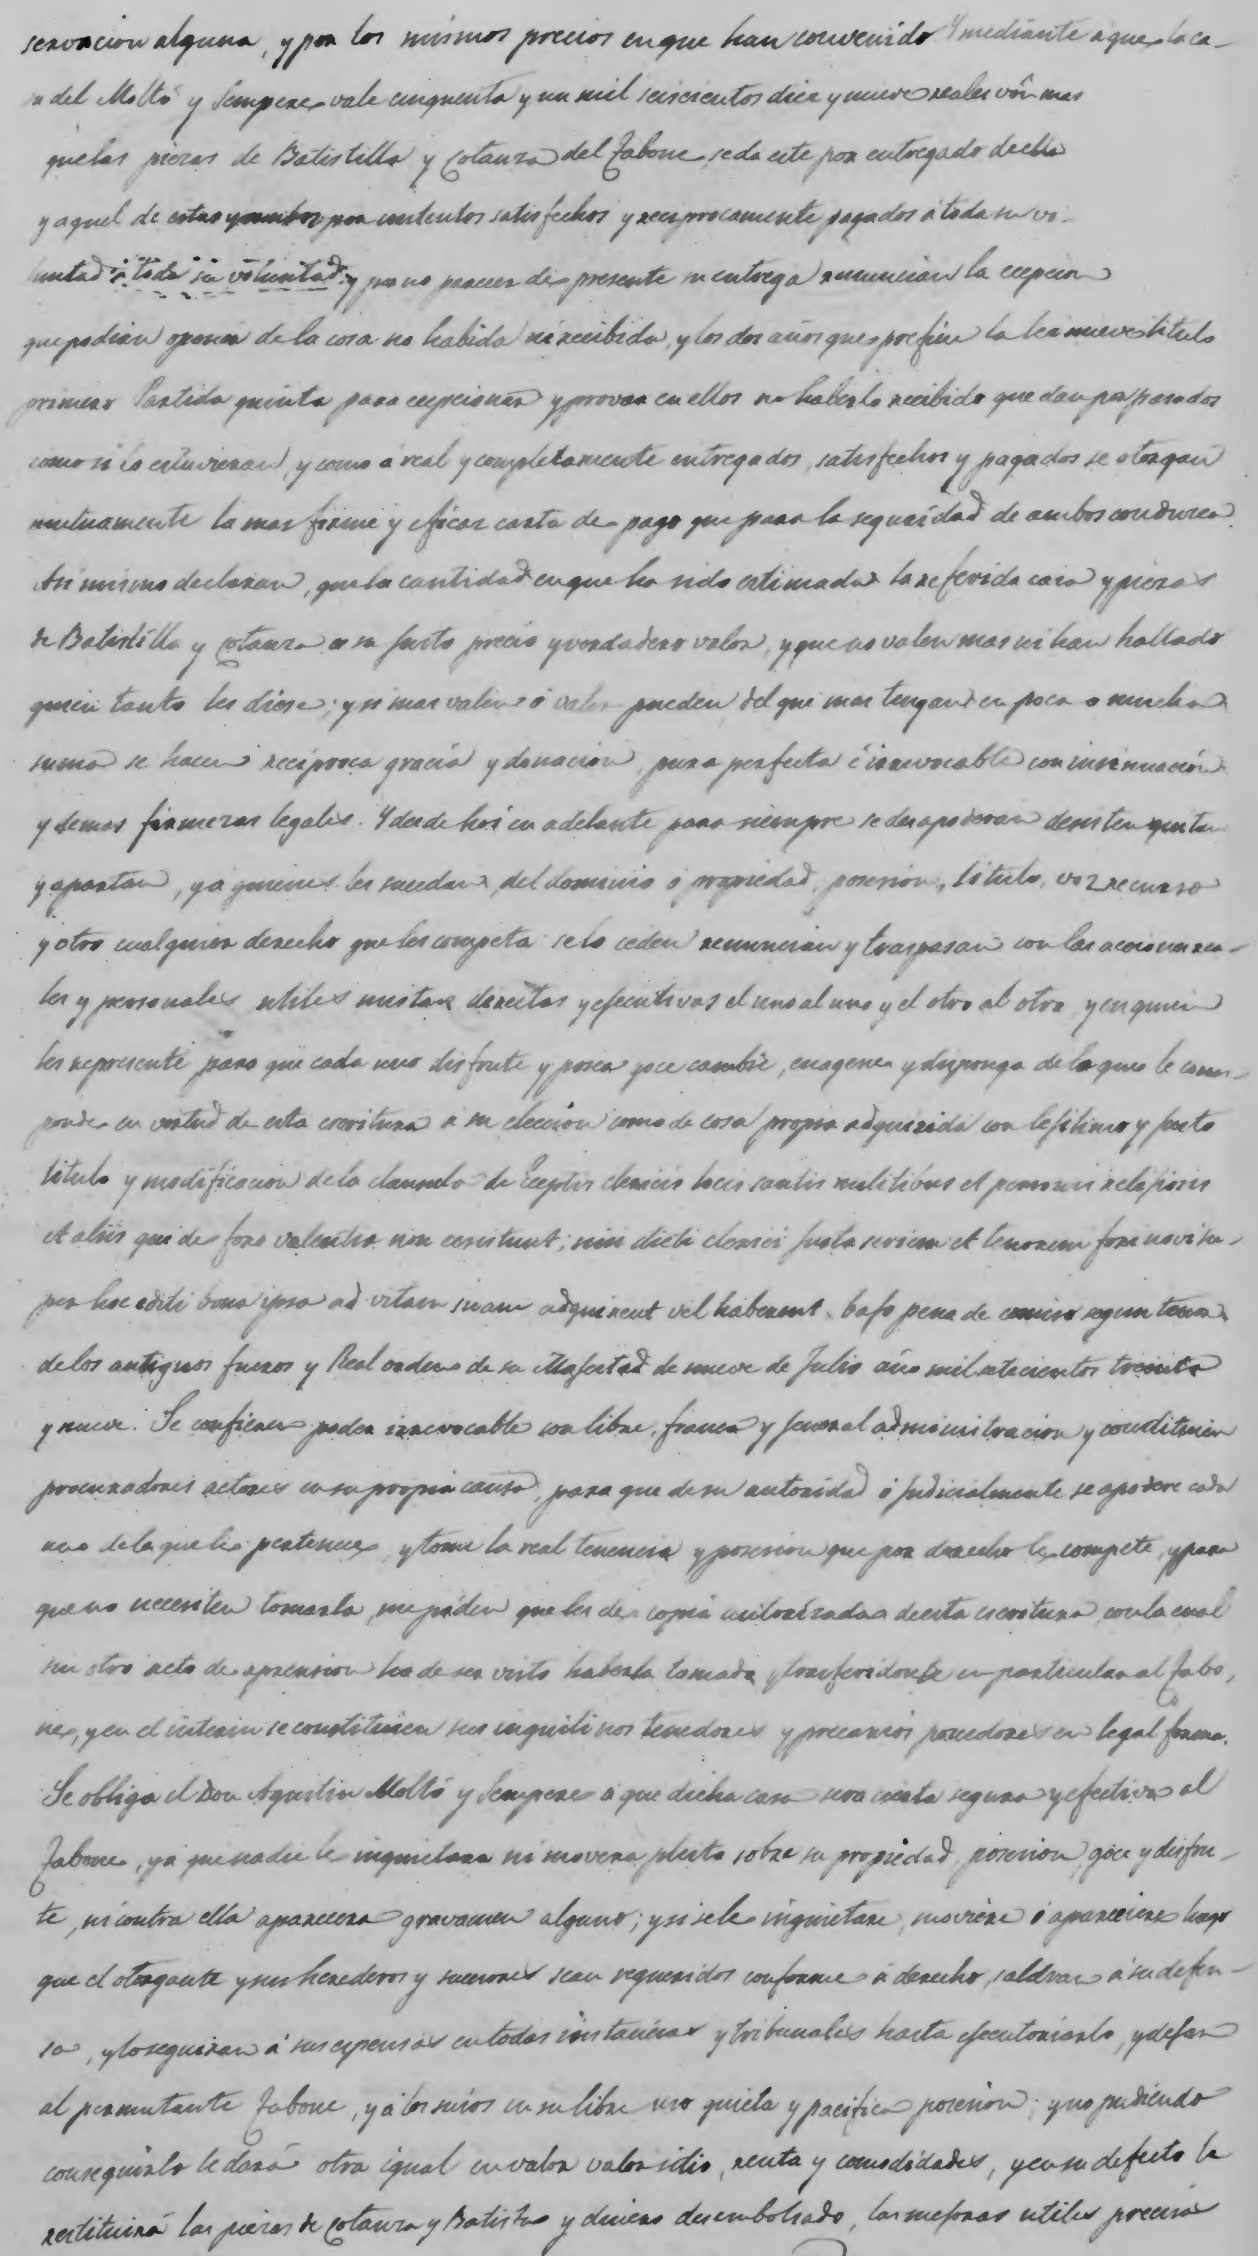 servacion alguna, y por los mismos precios en que han convenido Y mediante a que la ca-
sa del Moltó y Sempere vale cinquenta y un mil seiscientos diez y nueve reales von mas
que las piezas de Batistilla y Cotanza del Jabone, se da este por entregado de ella
y aquel de estas y ambos por contentos satisfechos y reciprocamente pagados á toda su vo-
luntad á toda su voluntad y por no parecer de presente su entrega renuncian la ecepcion
que podian oponer de la cosa no habida ni recibida, y los dos años que prefine la lei nueve titulo
primero Partida quinta para ecepcionar y provar en ellos no haberlo recibido que dan por pasados
como si lo estuvieran, y como á real y completamente entregados, satisfechos y pagados se otorgan
mutuamente la mas firme y eficaz carta de pago que para la seguridad de ambos conduzca.
Asi mismo declaran, que la cantidad en que ha sido estimada la referida casa y piezas
de Batistilla y Cotanza es su justo precio y verdadero valor, y que no valen mas ni han hallado
quien tanto les diese; y si mas valen ó valer pueden del que mas tengan en poca o mucha
suma se hacen reciproca gracia y donacion, pura perfecta é irrevocable con insinuacion
y demas firmezas legales. Y desde hoi en adelante para siempre se desapoderan desisten quitan
y apartan, y a quienes les sucedan, del dominio ó propiedad, posesion, titulo, voz recurso
y otro cualquier derecho que les competa: se lo ceden renuncian y traspasan con las acciones rea-
les y personales utiles mistas directas y ejecutivas el uno al uno y el otro al otro, y en quien
les represente para que cada uno disfrute y posea goce cambie, enagene y disponga de la que le corres-
ponde en virtud de esta escritura á su eleccion como de cosa propia adquirida con lejitimo y justo
titulo y modificacion de la clausula de Eceptis clericis locis santis militibus et personis relijiosis
et aliis qui de foro valentiae non existunt; nisi dicti clerici justa seriem et tenorem fori novi su-
per hoc editi bona ipsa ad vitam suam adquirent vel haberent. bajo pena de comiso segun tenor
de los antiguos fueros y Real orden de su Majestad de nueve de Julio año mil setecientos treinta
y nueve. Se confieren poder irrevocable con libre, franca y jeneral administracion y constituien
procuradores actores en su propia causa, para que de su autoridad ó judicialmente se apodere cada
uno de la que le pertenece, y tome la real tenencia y posesion que por derecho le compete, y para
que no necesiten tomarla, me piden que les de copia autorizada de esta escritura, con la cual
sin otro acto de aprension ha de ser visto haberla tomado y trasferidosele en particular al Jabo,
ne, y en el interin se constituien sus inquilinos tenedores y precarios poseedores en legal forma.
Se obliga el Don Agustin Moltó y Sempere a que dicha casa sera cierta segura y efectiva al
Jabone, y a que nadie le inquietara ni movera pleito sobre su propiedad, posesion, goce y disfru-
te, ni contra ella aparecera gravamen alguno; y si se le inquietare, moviere ó apareciere luego
que el otorgante y sus herederos y sucesores sean requeridos conforme á derecho, saldran á su defen-
sa, y lo seguiran á sus espensas en todas instancias y tribunales hasta ejecutoriarlo, y dejar
al permutante Jabone, y á los suios en su libre uso quieta y pacifica posesion; y no pudiendo
conseguirlo le dará otra igual en valor valor sitio, renta y comodidades, y en su defecto le
restituirá las piezas de Cotanza y Batista y dinero desembolsado, las mejoras utiles precisa